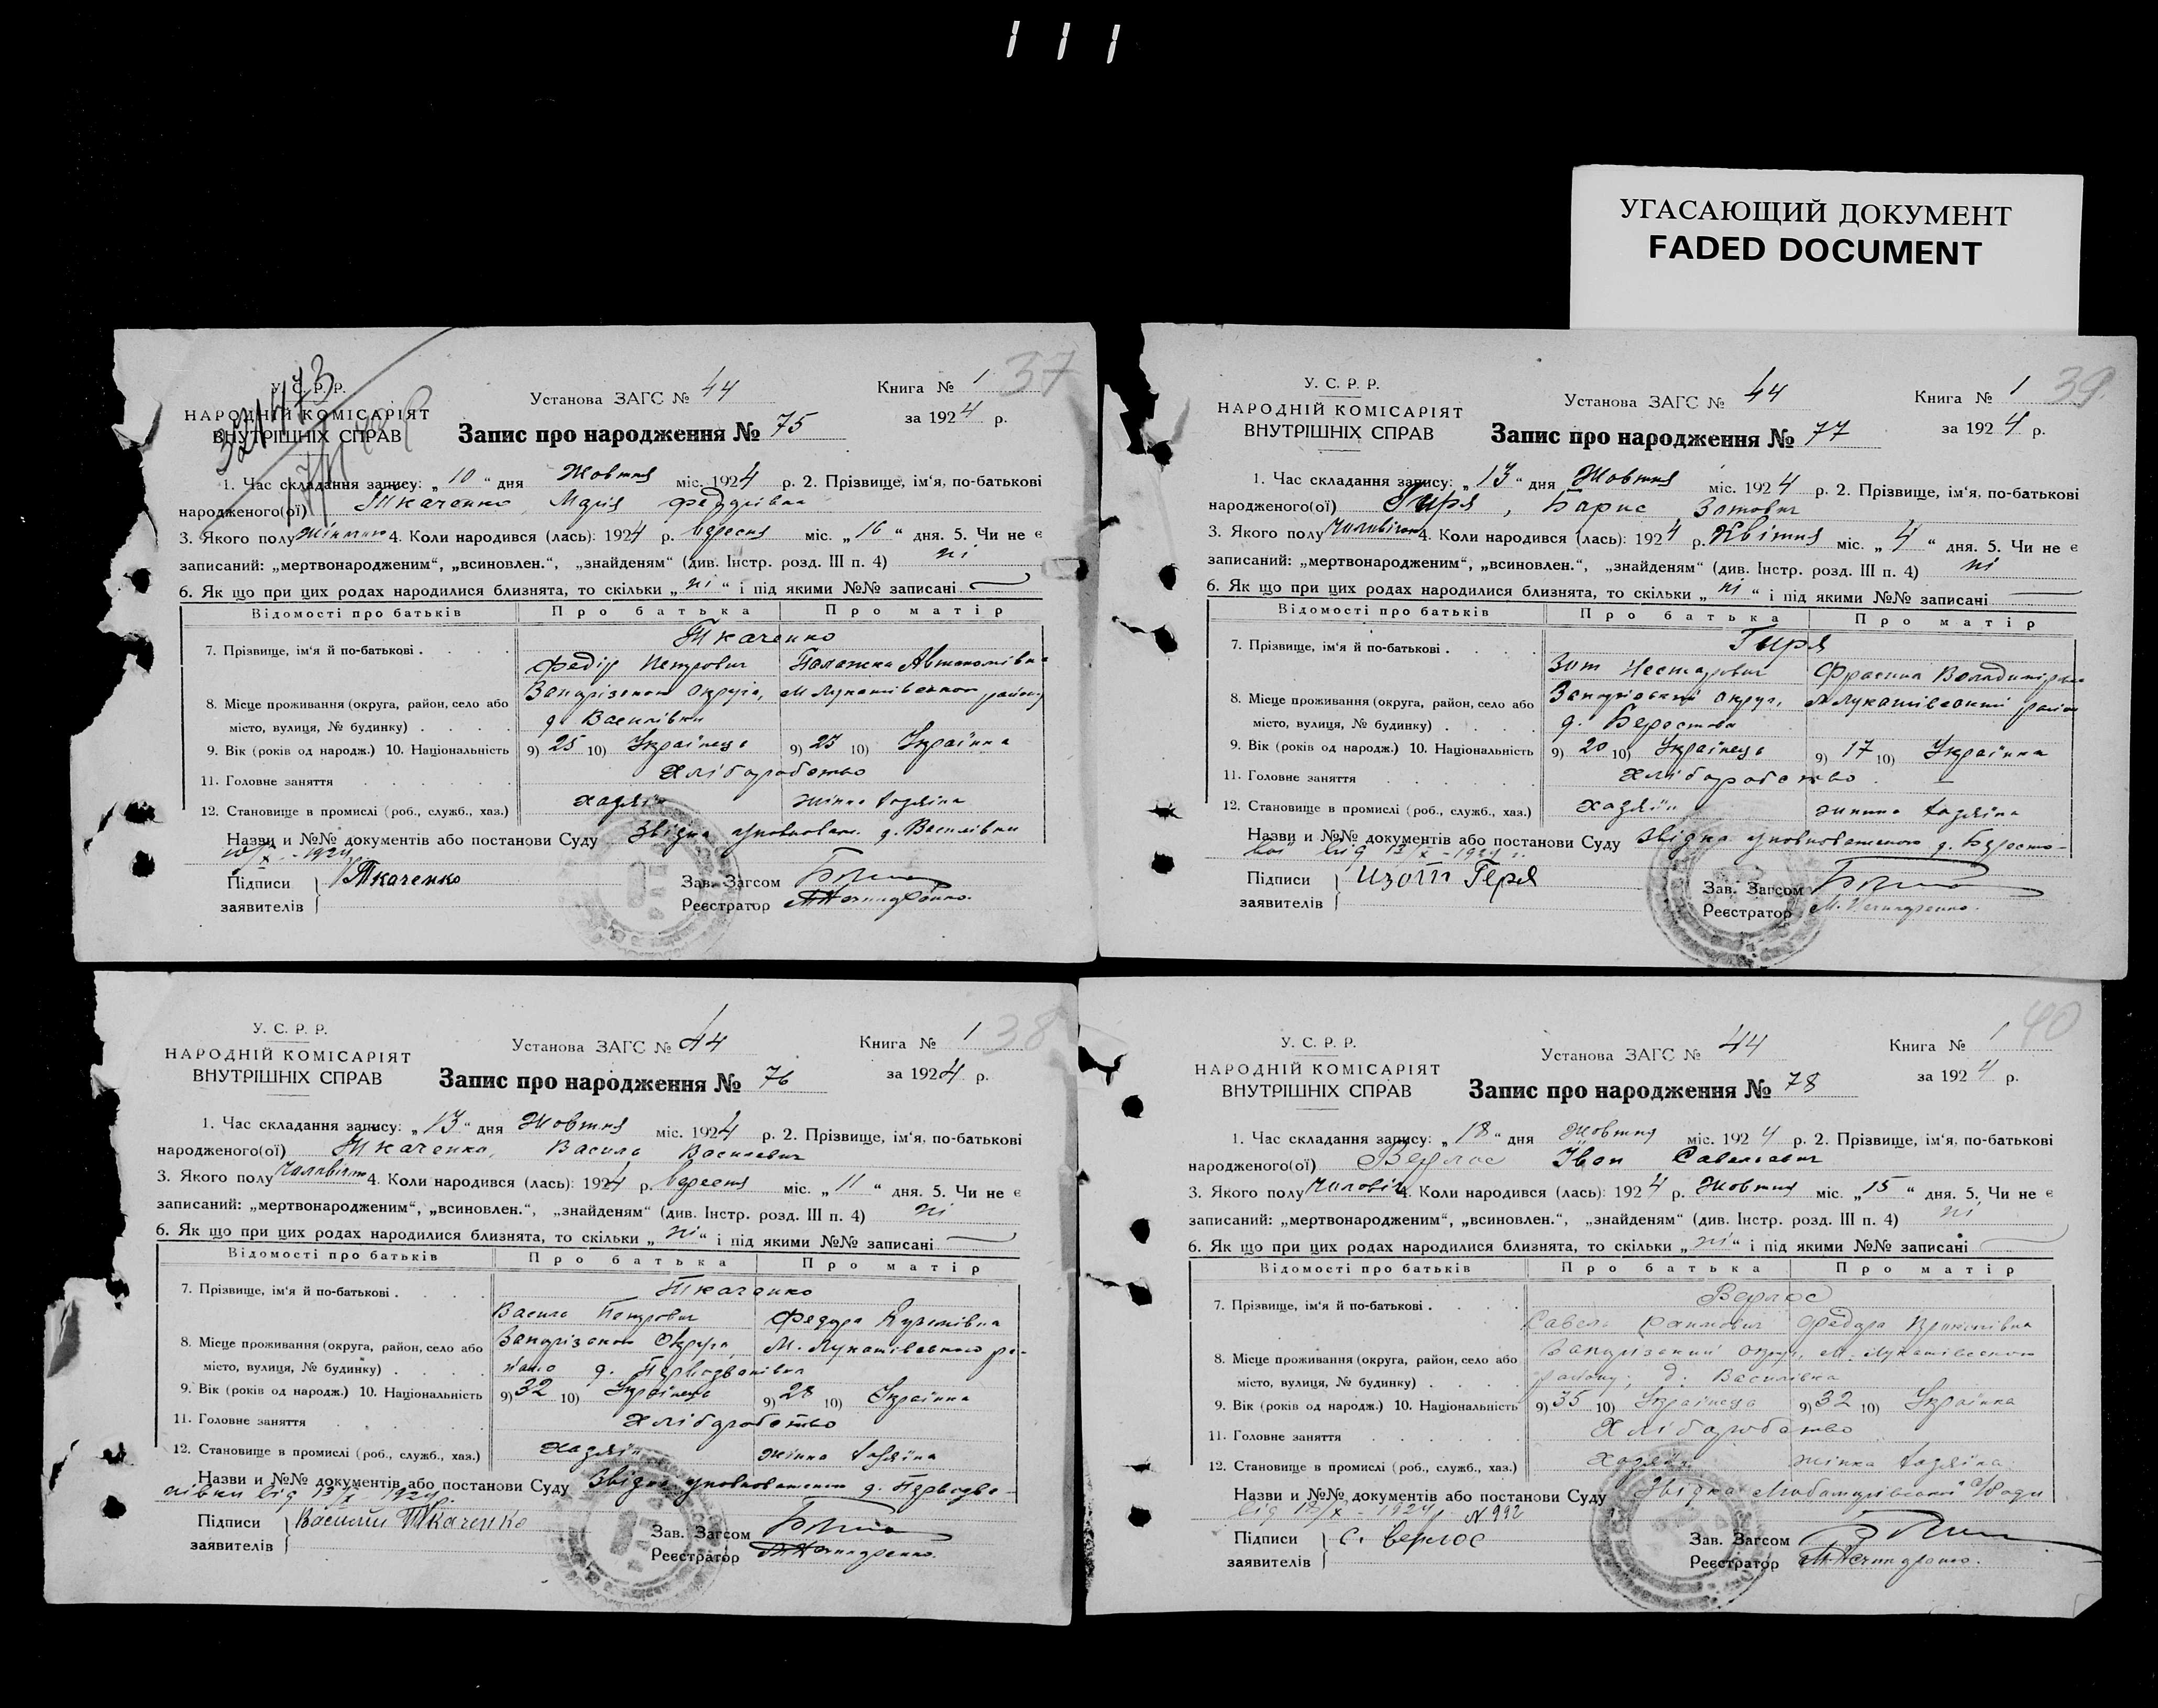 111
УГАСАЮЩИЙ ДОКУМЕНТ
FADED DOCUMENT
37
У. С. Р. Р.
НАРОДНІЙ КОМІСАРІЯТ
ВНУТРІШНІХ СПРАВ
Установа ЗАГС № 44
Книга № 1
за 1924 р.
Запис про народження № 75
1. Час складання запису: „10“ дня Жовтня міс. 1924 р. 2. Прізвище, ім‘я, по-батькові
народженого(ої) Ткаченко, Марія Федорівна
3. Якого полу Жіночого 4. Коли народився (лась): 1924 р. вересня міс. „16“ дня. 5. Чи не є
записаний: „мертвонародженим“, „всиновлен.“, „знайденям“ (див. Інстр. розд. III п. 4) ні
6. Як що при цих родах народилися близнята, то скільки „ні“ і під якими №№ записані
Відомості про батьків Про батька Про матір
7. Прізвище, ім‘я й по-батькові . Ткаченко
Федір Петрович Палажка Автономівна
8. Місце проживання (округа, район, село або
місто, вулиця, № будинку) д. Василівки
9. Вік (років од народж.) 10. Національність 9) 25 10) Українець 9) 23 10) Українка
11. Головне заняття Хліборобство
12. Становище в промислі (роб., служб., хаз.) хазяїн жінка хазяїна
Назви и №№ документів або постанови Суду Звідка уповноваж. д. Василівки
10/X - 1924
Підписи
заявителів Ткаченко
Зав. Загсом
Реєстратор
39
У. С. Р. Р.
НАРОДНІЙ КОМІСАРІЯТ
ВНУТРІШНІХ СПРАВ
Установа ЗАГС № 44
Книга № 1
за 1924 р.
Запис про народження № 77
1. Час складання запису: „13“ дня Жовтня міс. 1924 р. 2. Прізвище, ім‘я, по-батькові
народженого(ої) Гиря, Барис Зотович
3. Якого полу Чоловічого 4. Коли народився (лась): 1924 р. Квітня міс. „4“ дня. 5. Чи не є
записаний: „мертвонародженим“, „всиновлен.“, „знайденям“ (див. Інстр. розд. III п. 4) ні
6. Як що при цих родах народилися близнята, то скільки „ні“ і під якими №№ записані
Відомості про батьків Про батька Про матір
7. Прізвище, ім‘я й по-батькові . Гиря
Зот Несторович Фросина Володимирівна
8. Місце проживання (округа, район, село або
місто, вулиця, № будинку) д. Берестова
9. Вік (років од народж.) 10. Національність 9) 20 10) Українець 9) 17 10) Українка
11. Головне заняття Хліборобство
12. Становище в промислі (роб., служб., хаз.) хазяїн жинка хазяїна
Назви и №№ документів або постанови Суду Звідка уповноваженого д. Бересто-
вої від 13/X - 1924 р.
Підписи
заявителів Изот Геря
Зав. Загсом
Реєстратор
38
У. С. Р. Р.
НАРОДНІЙ КОМІСАРІЯТ
ВНУТРІШНІХ СПРАВ
Установа ЗАГС № 44
Книга № 1
за 1924 р.
Запис про народження № 76
1. Час складання запису: „13“ дня Жовтня міс. 1924 р. 2. Прізвище, ім‘я, по-батькові
народженого(ої) Ткаченко, Василь Василевич
3. Якого полу Чоловічого 4. Коли народився (лась): 1924 р. вересня міс. „11“ дня. 5. Чи не є
записаний: „мертвонародженим“, „всиновлен.“, „знайденям“ (див. Інстр. розд. III п. 4) ні
6. Як що при цих родах народилися близнята, то скільки „ні“ і під якими №№ записані
Відомості про батьків Про батька Про матір
7. Прізвище, ім‘я й по-батькові . Ткаченко
Василь Петрович Федора
8. Місце проживання (округа, район, село або
місто, вулиця, № будинку) д. Первозванівка
9. Вік (років од народж.) 10. Національність 9) 32 10) Українець 9) 28 10) Українка
11. Головне заняття Хліборобство
12. Становище в промислі (роб., служб., хаз.) хазяїн жінка хазяїна
Назви и №№ документів або постанови Суду Звідка уповноваженого д. Первозва-
нівки від 13/X 1924 р.
Підписи
заявителів Василий Ткаченко
Зав. Загсом
Реєстратор
40
У. С. Р. Р.
НАРОДНІЙ КОМІСАРІЯТ
ВНУТРІШНІХ СПРАВ
Установа ЗАГС № 44
Книга № 1
за 1924 р.
Запис про народження № 78
1. Час складання запису: „18“ дня Жовтня міс. 1924 р. 2. Прізвище, ім‘я, по-батькові
народженого(ої) Верлос Іван Савелієвич
3. Якого полу Чоловіч 4. Коли народився (лась): 1924 р. Жовтня міс. „15“ дня. 5. Чи не є
записаний: „мертвонародженим“, „всиновлен.“, „знайденям“ (див. Інстр. розд. III п. 4) ні
6. Як що при цих родах народилися близнята, то скільки „ні“ і під якими №№ записані
Відомості про батьків Про батька Про матір
7. Прізвище, ім‘я й по-батькові . Верлос
Савель Федора
8. Місце проживання (округа, район, село або
місто, вулиця, № будинку) району, д. Василівка
9. Вік (років од народж.) 10. Національність 9) 35 10) Українець 9) 32 10) Українка
11. Головне заняття Хліборобство
12. Становище в промислі (роб., служб., хаз.) хазяїн жінка хазяїна
Назви и №№ документів або постанови Суду Звідка Ради
від 18/X - 1924 р. № 992
Підписи
заявителів С. Верлос
Зав. Загсом
Реєстратор